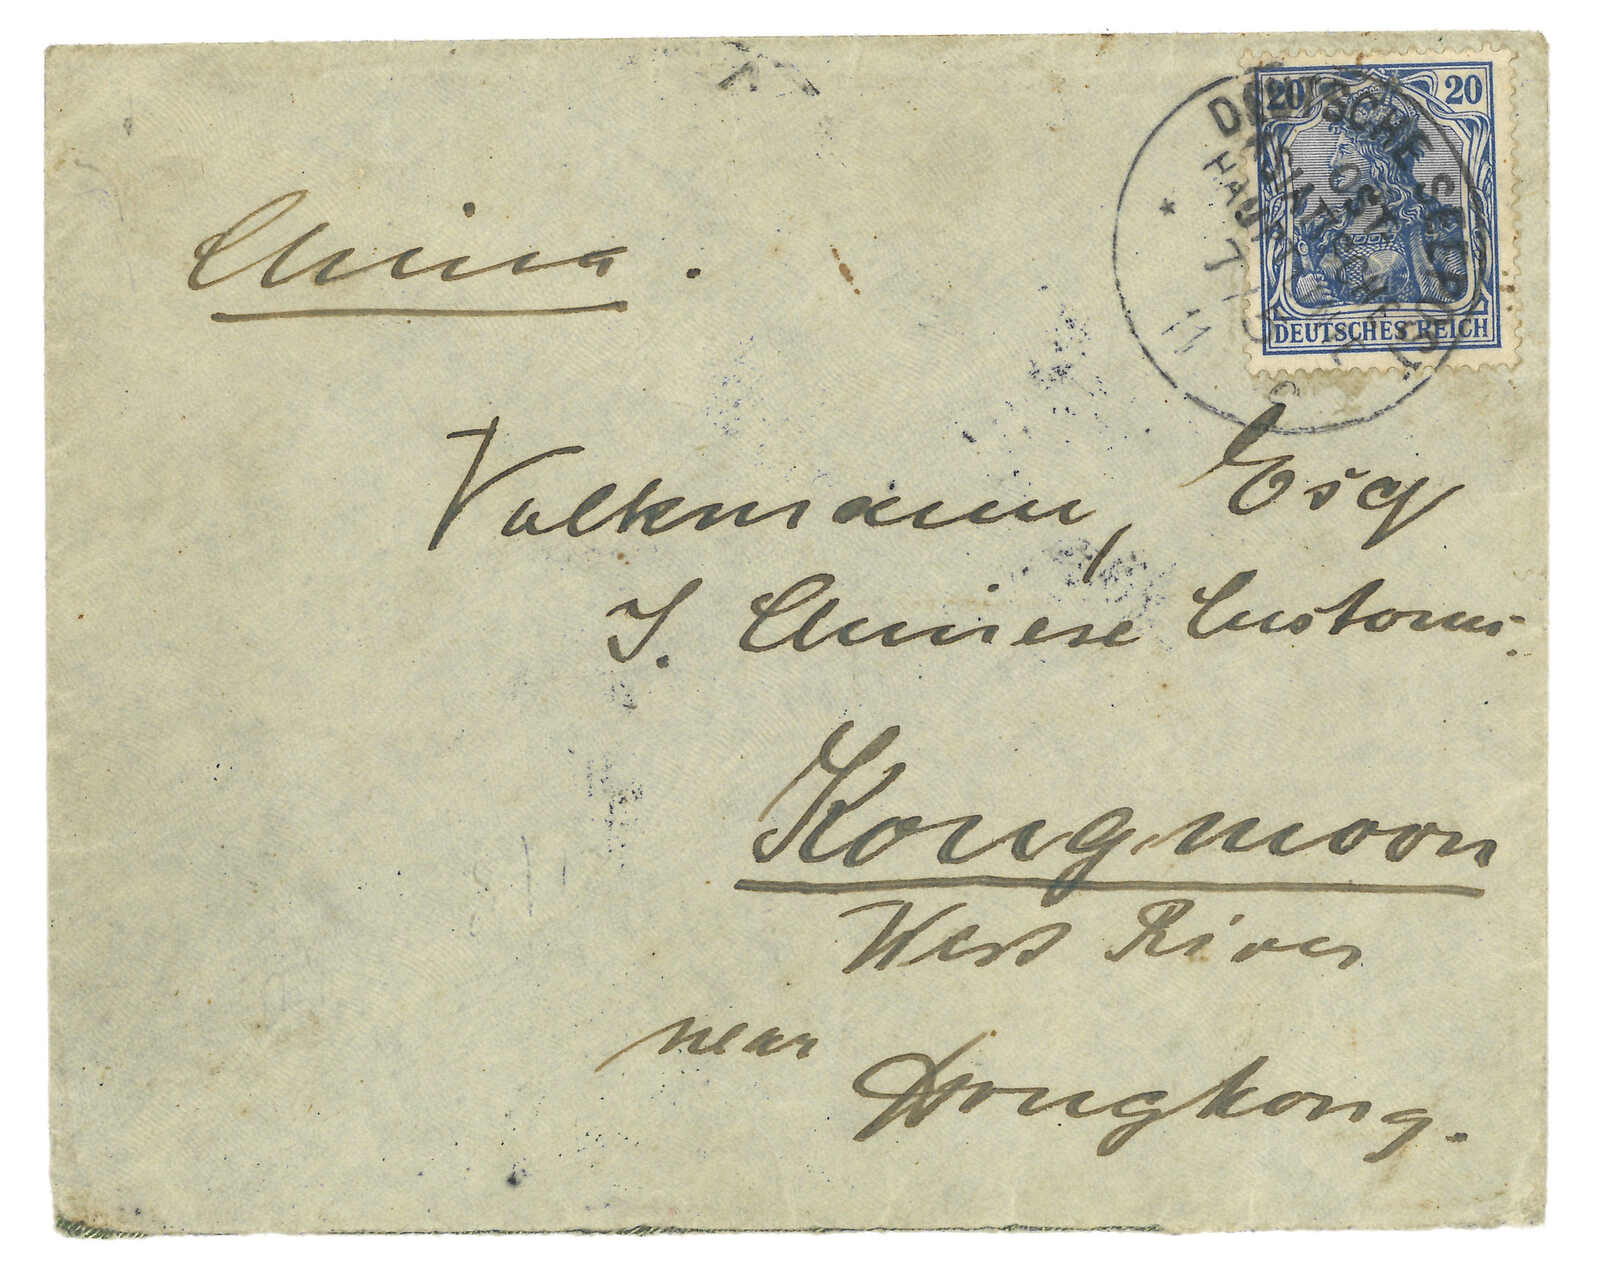 20 20
DEUTSCHES REICH
DEUTSCHE SEEPOST
OSTASIATISCHE
HAUPTLINIE
China.
Volkmann, Esq
I. Chinese Customs.
Kongmoon
West River
near
Hongkong.